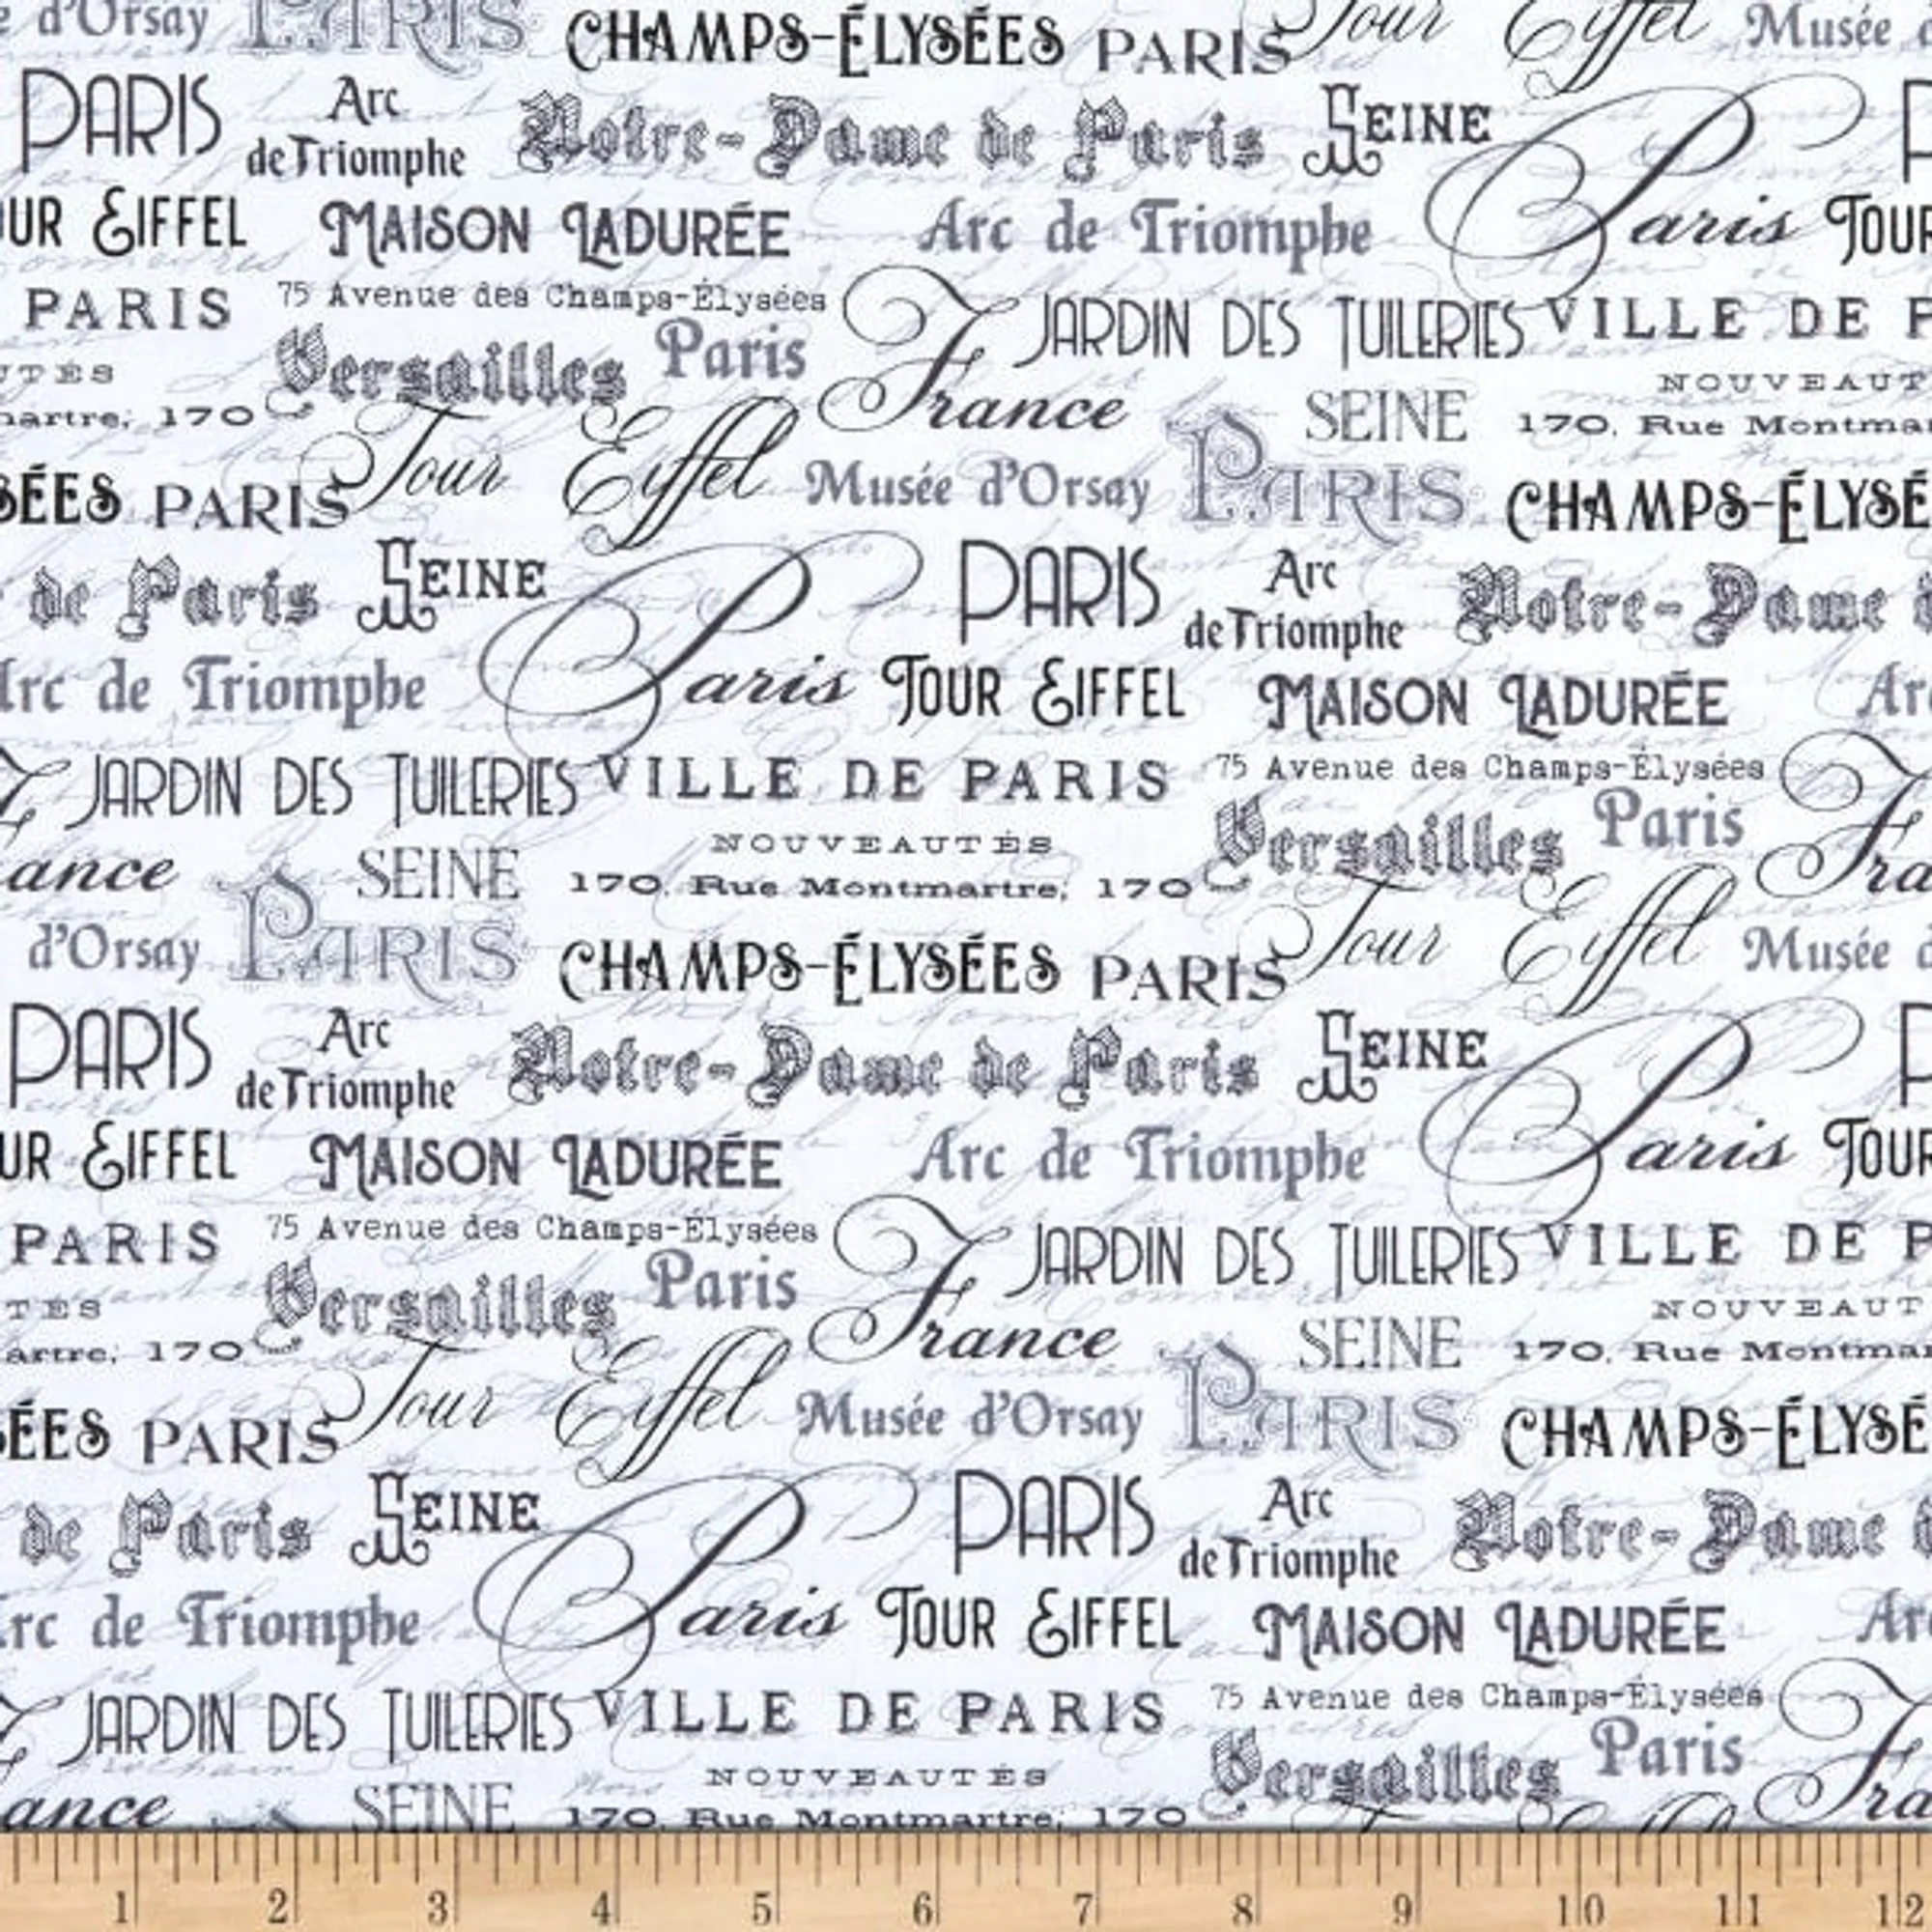 d'Orsay PARIS CHAMPS-ÉLYSÉES PARIS Tour Eiffel Musée
PARIS Arc de Triomphe Notre-Dame de Paris SEINE Paris
EIFFEL MAISON LADURÉE Arc de Triomphe TOUR
PARIS 75 Avenue des Champs-Élysées France JARDIN DES TUILERIES VILLE DE P
UTÉS Versailles Paris SEINE NOUVEAUT
martre, 170 170, Rue Montmar
SÉES PARIS Tour Eiffel Musée d'Orsay PARIS CHAMPS-ÉLYSÉ
de Paris SEINE Paris PARIS Arc de Triomphe Notre-Dame
Arc de Triomphe TOUR EIFFEL MAISON LADURÉE Ar
JARDIN DES TUILERIES VILLE DE PARIS 75 Avenue des Champs-Élysées Fra
ance SEINE NOUVEAUTÉS Versailles Paris
170, Rue Montmartre, 170
d'Orsay PARIS CHAMPS-ÉLYSÉES PARIS Tour Eiffel Musée
PARIS Arc de Triomphe Notre-Dame de Paris SEINE Paris
UR EIFFEL MAISON LADURÉE Arc de Triomphe TOUR
PARIS 75 Avenue des Champs-Élysées France JARDIN DES TUILERIES VILLE DE P
TÉS Versailles Paris SEINE NOUVEAUT
artre, 170 170, Rue Montmar
ÉES PARIS Tour Eiffel Musée d'Orsay PARIS CHAMPS-ÉLYSÉ
de Paris SEINE Paris PARIS Arc de Triomphe Notre-Dame
rc de Triomphe TOUR EIFFEL MAISON LADURÉE Ar
JARDIN DES TUILERIES VILLE DE PARIS 75 Avenue des Champs-Élysées Fra
ance SEINE NOUVEAUTÉS Versailles Paris
170, Rue Montmartre, 170
1 2 3 4 5 6 7 8 9 10 11 12